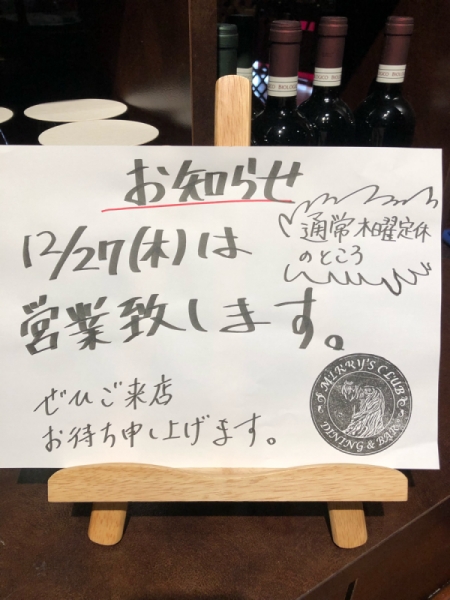 お知らせ
12/27(木)は
通常木曜定休
のところ
営業致します。
ぜひご来店
お待ち申し上げます。
MIRRY'S CLUB
DINING & BAR